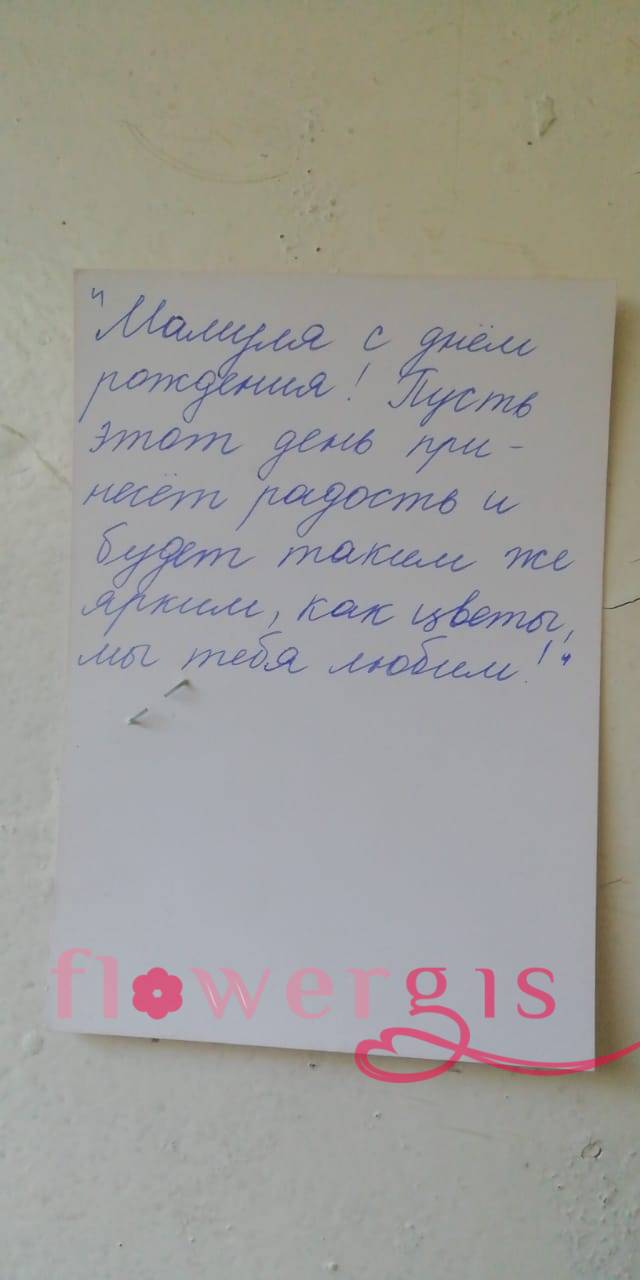 "Мамуля с днём
рождения! Пусть
этот день при-
несёт радость и
будет таким же
ярким, как цветы,
мы тебя любим!"
flowergis